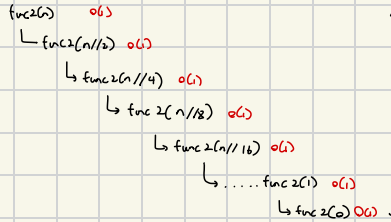 func2(n) O(1)
↳ func2(n//2) O(1)
↳ func2(n//4) O(1)
↳ func2(n//8) O(1)
↳ func2(n//16) O(1)
↳ ..... func2(1) O(1)
↳ func2(0) O(1)